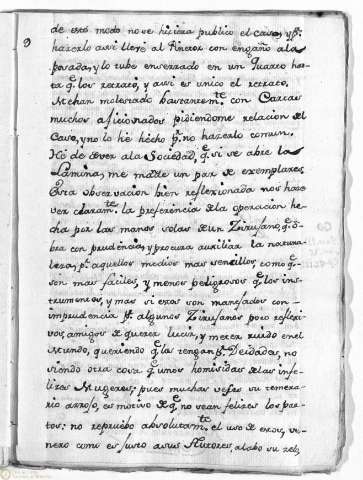 9
de esto modo no se hiziera publico el caso, y pª.
hazerlo assi llevé al Pintor con engaño ala
posada, y lo tube enserrado en un Quarto has-
ta qe. los retrató, y assi es unico el retrato.
Mehan molestado bastantemte. con Cartas
muchos aficionados pidiendome relacion del
Caso, y no lo hé hecho pr. no hazerlo comun.
Hé de dever ala Sociedad, qe. si se abre la
Lamina, me mande un par de exemplares,
Esta observacion bien reflexionada nos haze
ver claramte. la preferencia dela operacion he-
cha por las manos solas de un Zirujano, qe. o-
bra con prudencia, y procura auxiliar la natura-
leza, pr. aquellos medios mas sencillos, como qe.
son mas faciles, y menos peligrosos qe. los ins-
trumentos, y mas si estos son manejados con
imprudencia pr. algunos Zirujanos poco reflexi-
vos, amigos de querer lucir, y meter ruido en el
Mundo, queriendo qe. los tengan pr. Deidades, no
siendo otra cosa qe. unos homisidas de las infe-
lizes Mugeres; pues muchas vezes su temera-
rio arrojo, es motivo de qe. no sean felizes los par-
tos: no repruebo absolutamte. el uso de estos, ve-
nero como es justo asus Autores, alabo su zelo,